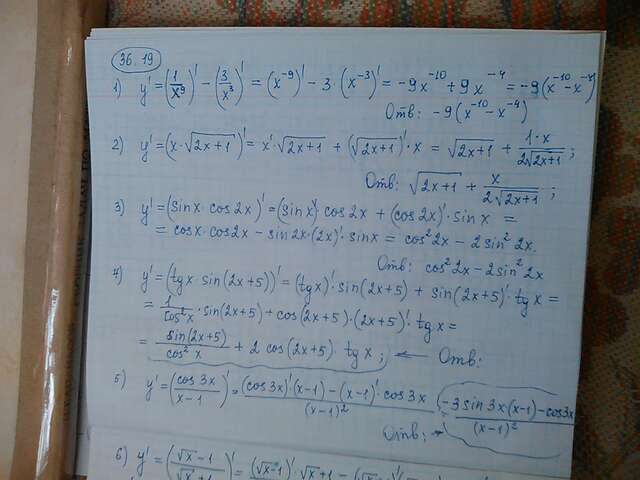 36.19
1) y' = (1/x⁹)' - (3/x³)' = (x⁻⁹)' - 3·(x⁻³)' = -9x⁻¹⁰ + 9x⁻⁴ = -9(x⁻¹⁰ - x⁻⁴)
Отв: -9(x⁻¹⁰ - x⁻⁴)
2) y' = (x·√(2x+1))' = x'·√(2x+1) + (√(2x+1))'·x = √(2x+1) + 1·x/(2√(2x+1));
Отв: √(2x+1) + x/(2√(2x+1));
3) y' = (sinx·cos2x)' = (sinx)'·cos2x + (cos2x)'·sinx =
= cosx·cos2x - sin2x·(2x)'·sinx = cos²2x - 2sin²2x.
Отв: cos²2x - 2sin²2x
4) y' = (tgx·sin(2x+5))' = (tgx)'·sin(2x+5) + sin(2x+5)'·tgx =
= 1/cos²x·sin(2x+5) + cos(2x+5)·(2x+5)'·tgx =
= sin(2x+5)/cos²x + 2cos(2x+5)·tgx; ← Отв:
5) y' = (cos3x/(x-1))' = ((cos3x)'(x-1) - (x-1)'·cos3x)/(x-1)² = (-3sin3x(x-1) - cos3x)/(x-1)²
Отв: →
6) y' = ((√x - 1)/(√x + 1))' = (√x-1)'·√x+1 -